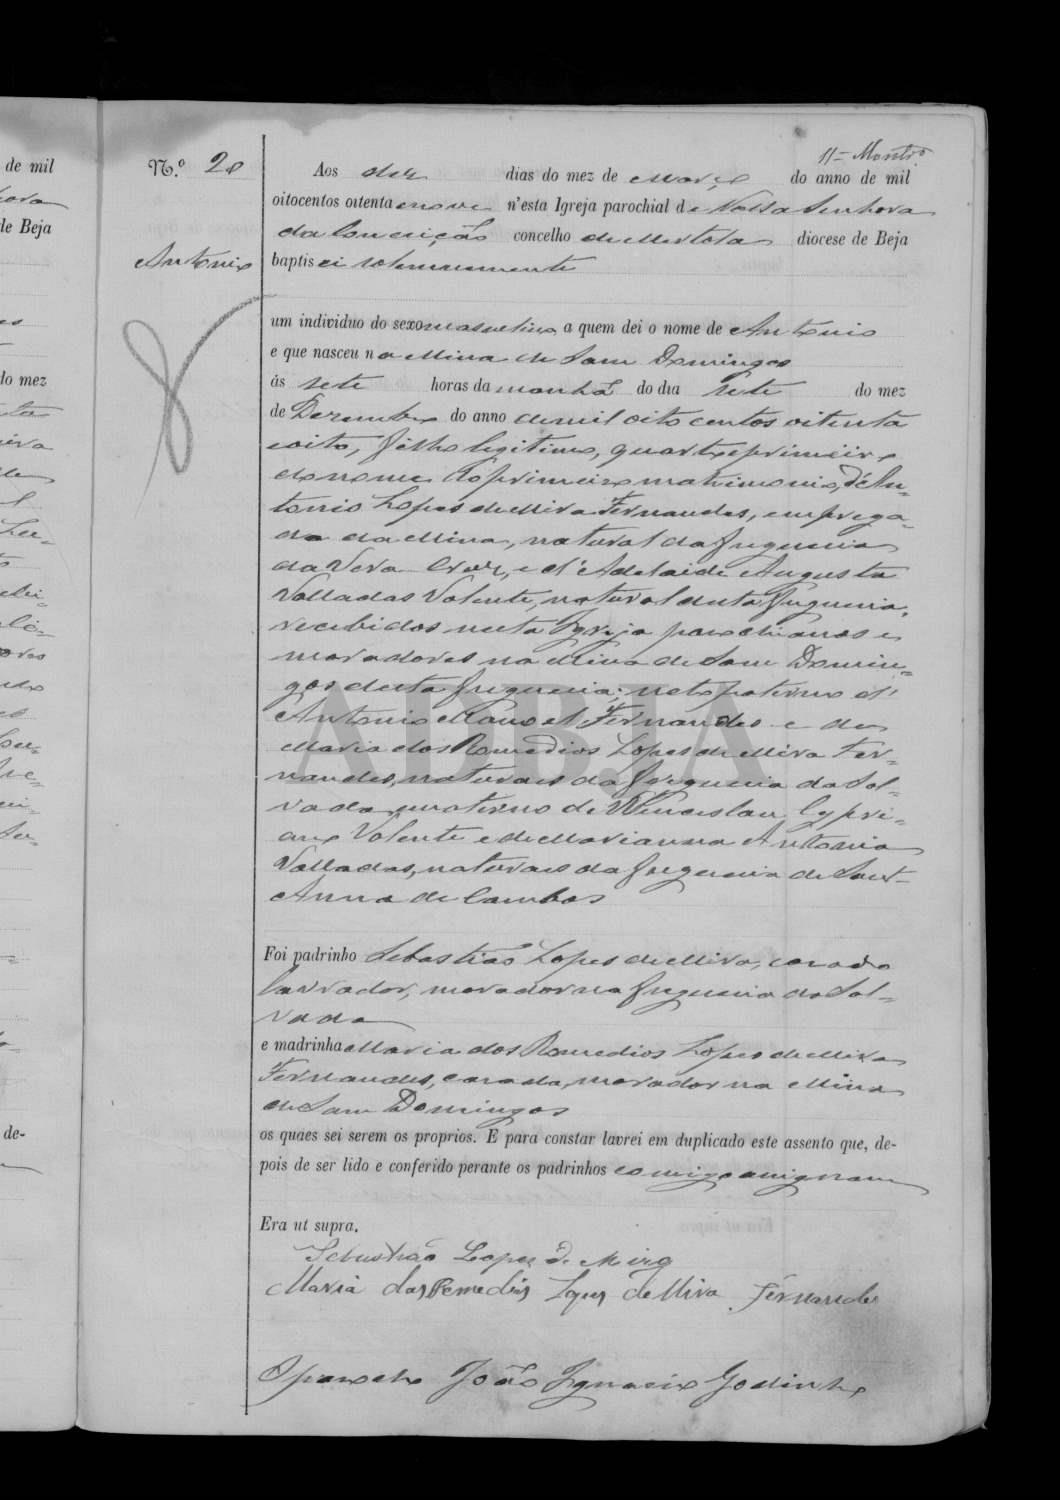 de mil
de Beja
do mez
de-
11 - Montr.º
N.º 28
Antonio
Aos dez dias do mez de Março do anno de mil
oitocentos oitenta e nove n'esta Igreja parochial de Nossa Senhora
da Conceição concelho de Mertola diocese de Beja
baptisei solemnemente
um individuo do sexo masculino a quem dei o nome de Antonio
e que nasceu na Mina de Sam Domingos
ás sete horas da manhã do dia sete do mez
de Dezembro do anno de mil oito centos oitenta
e oito, filho legitimo, quarto e primeiro
do nome do primeiro matrimonio, d'An-
tonio Lopes de Mira Fernandes, emprega-
do da Mina, natural da freguesia
da Vera Cruz, e d'Adelaide Augusta
Valladas Valente, natural desta freguesia,
recebidos nesta Igreja parochianos e
moradores na Mina de Sam Domin-
gos desta freguesia; neto paterno d'
Antonio Manoel Fernandes e de
Maria dos Remedios Lopes de Mira Fer-
nandes, naturaes da freguesia da Sal-
vada, materno de Wenceslau Cypri-
ano Valente e de Marianna Antonia
Valladas, naturaes da freguesia de Sant-
Anna de Cambas
ADBJA
Foi padrinho Sebastião Lopes de Mira, casado
lavrador, morador na freguesia da Sal-
vada
e madrinha Maria dos Remedios Lopes de Mira
Fernandes, casada, morador na Mina
de Sam Domingos
os quaes sei serem os proprios. E para constar lavrei em duplicado este assento que, de-
pois de ser lido e conferido perante os padrinhos comigo assignam
Era ut supra.
Sebastião Lopes de Mira
Maria dos Remedios Lopes de Mira Fernandes
O parocho João Ignacio Godinho